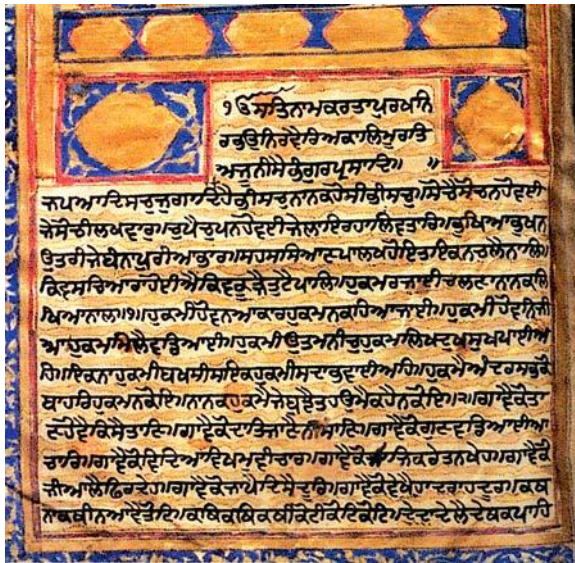 ੴਸਤਿਨਾਮਕਰਤਾਪੁਰਖਨਿ
ਰਭਉਨਿਰਵੈਰਿਅਕਾਲਿਮੂਰਤਿ
ਅਜੂਨੀਸੈਭੰਗੁਰਪ੍ਰਸਾਦਿ॥ ॥
ਜਪਆਦਿਸਚੁਜੁਗਾਦਿਹੈਭੀਸਚਨਾਨਕਹੋਸੀਭੀਸਚੁ॥ਸੋਚੈਸੋਚਨਹੋਵਈ
ਜੇਸੋਚੀਲਖਵਾਰ॥ਚੁਪੈਚੁਪਨਹੋਵਈਜੇਲਾਇਰਹਾਲਿਵਤਾਰਿ॥ਭੁਖਿਆਭੁਖਨ
ਉਤਰੀਜੇਬੰਨਾਪੁਰੀਆਭਾਰ॥ਸਹਸਸਿਆਣਪਾਲਖਹੋਇਤਇਕਨਚਲੈਨਾਲਿ॥
ਕਿਵਸਚਿਆਰਾਹੋਈਐਕਿਵਕੂੜੈਤੁਟੈਪਾਲਿ॥ਹੁਕਮਰਜਾਈਚਲਣਾਨਾਨਕਲਿ
ਖਿਆਨਾਲ॥੧॥ਹੁਕਮੀਹੋਵਨਆਕਾਰਹੁਕਮਨਕਹਿਆਜਾਈ॥ਹੁਕਮੀਹੋਵਨਿਜੀ
ਆਹੁਕਮਮਿਲੈਵਡਿਆਈ॥ਹੁਕਮੀਉਤਮਨੀਚੁਹੁਕਮਲਿਖਦੁਖਸੁਖਪਾਈਅ
ਹਿ॥ਇਕਨਾਹੁਕਮੀਬਖਸੀਸਇਕਹੁਕਮੀਸਦਾਭਵਾਈਅਹਿ॥ਹੁਕਮੈਅੰਦਰਸਭੁਕੋ
ਬਾਹਰਿਹੁਕਮਨਕੋਇ॥ਨਾਨਕਹੁਕਮੈਜੇਬੁਝੈਤਹਉਮੈਕਹੈਨਕੋਇ॥੨॥ਗਾਵੈਕੋਤਾ
ਣਹੋਵੈਕਿਸੈਤਾਣਿ॥ਗਾਵੈਕੋਦਾਤਿਜਾਣੈਨੀਸਾਣਿ॥ਗਾਵੈਕੋਗੁਣਵਡਿਆਈਆ
ਚਾਰਿ॥ਗਾਵੈਕੋਵਿਦਿਆਵਿਖਮੁਵੀਚਾਰ॥ਗਾਵੈਕੋਸਾਜਿਕਰੇਤਨਖੇਹ॥ਗਾਵੈਕੋ
ਜੀਆਲੈਫਿਰਦੇਹ॥ਗਾਵੈਕੋਜਾਪੈਦਿਸੈਦੂਰਿ॥ਗਾਵੈਕੋਵੇਖੈਹਾਦਰਾਹਦੂਰ॥ਕਥ
ਨਾਕਥੀਨਆਵੈਤੋਟਿ॥ਕਥਿਕਥਿਕਥੀਕੋਟੀਕੋਟਿਕੋਟਿ॥ਦੇਦਾਦੇਲੈਦੇਥਕਪਾਹਿ